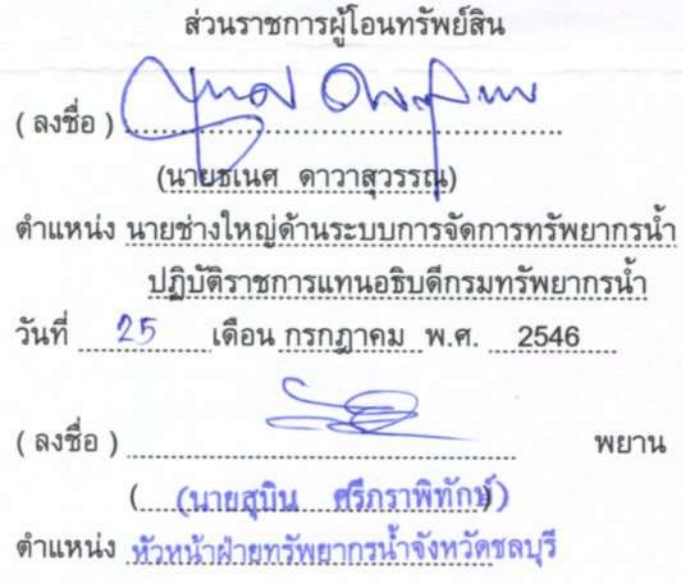 ส่วนราชการผู้โอนทรัพย์สิน
( ลงชื่อ )
(นายธเนศ ดาวาสุวรรณ)
ตำแหน่ง นายช่างใหญ่ด้านระบบการจัดการทรัพยากรน้ำ
ปฏิบัติราชการแทนอธิบดีกรมทรัพยากรน้ำ
วันที่ 25 เดือน กรกฎาคม พ.ศ. 2546
( ลงชื่อ ) พยาน
( (นายสุบิน ศรีภราพิทักษ์)
ตำแหน่ง หัวหน้าฝ่ายทรัพยากรน้ำจังหวัดชลบุรี